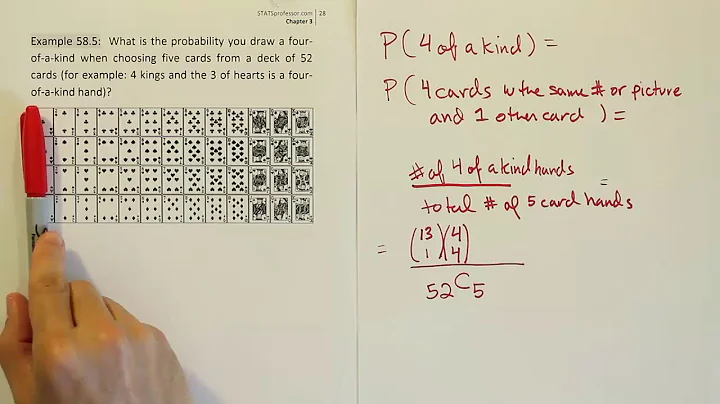 STATSprofessor.com | 28
Chapter 3
Example 58.5: What is the probability you draw a four-
of-a-kind when choosing five cards from a deck of 52
cards (for example: 4 kings and the 3 of hearts is a four-
of-a-kind hand)?
P(4 of a kind) =
P(4 cards w the same # or picture
and 1 other card) =
# of 4 of a kind hands
=
total # of 5 card hands
= (13 1)(4 4)
52C5